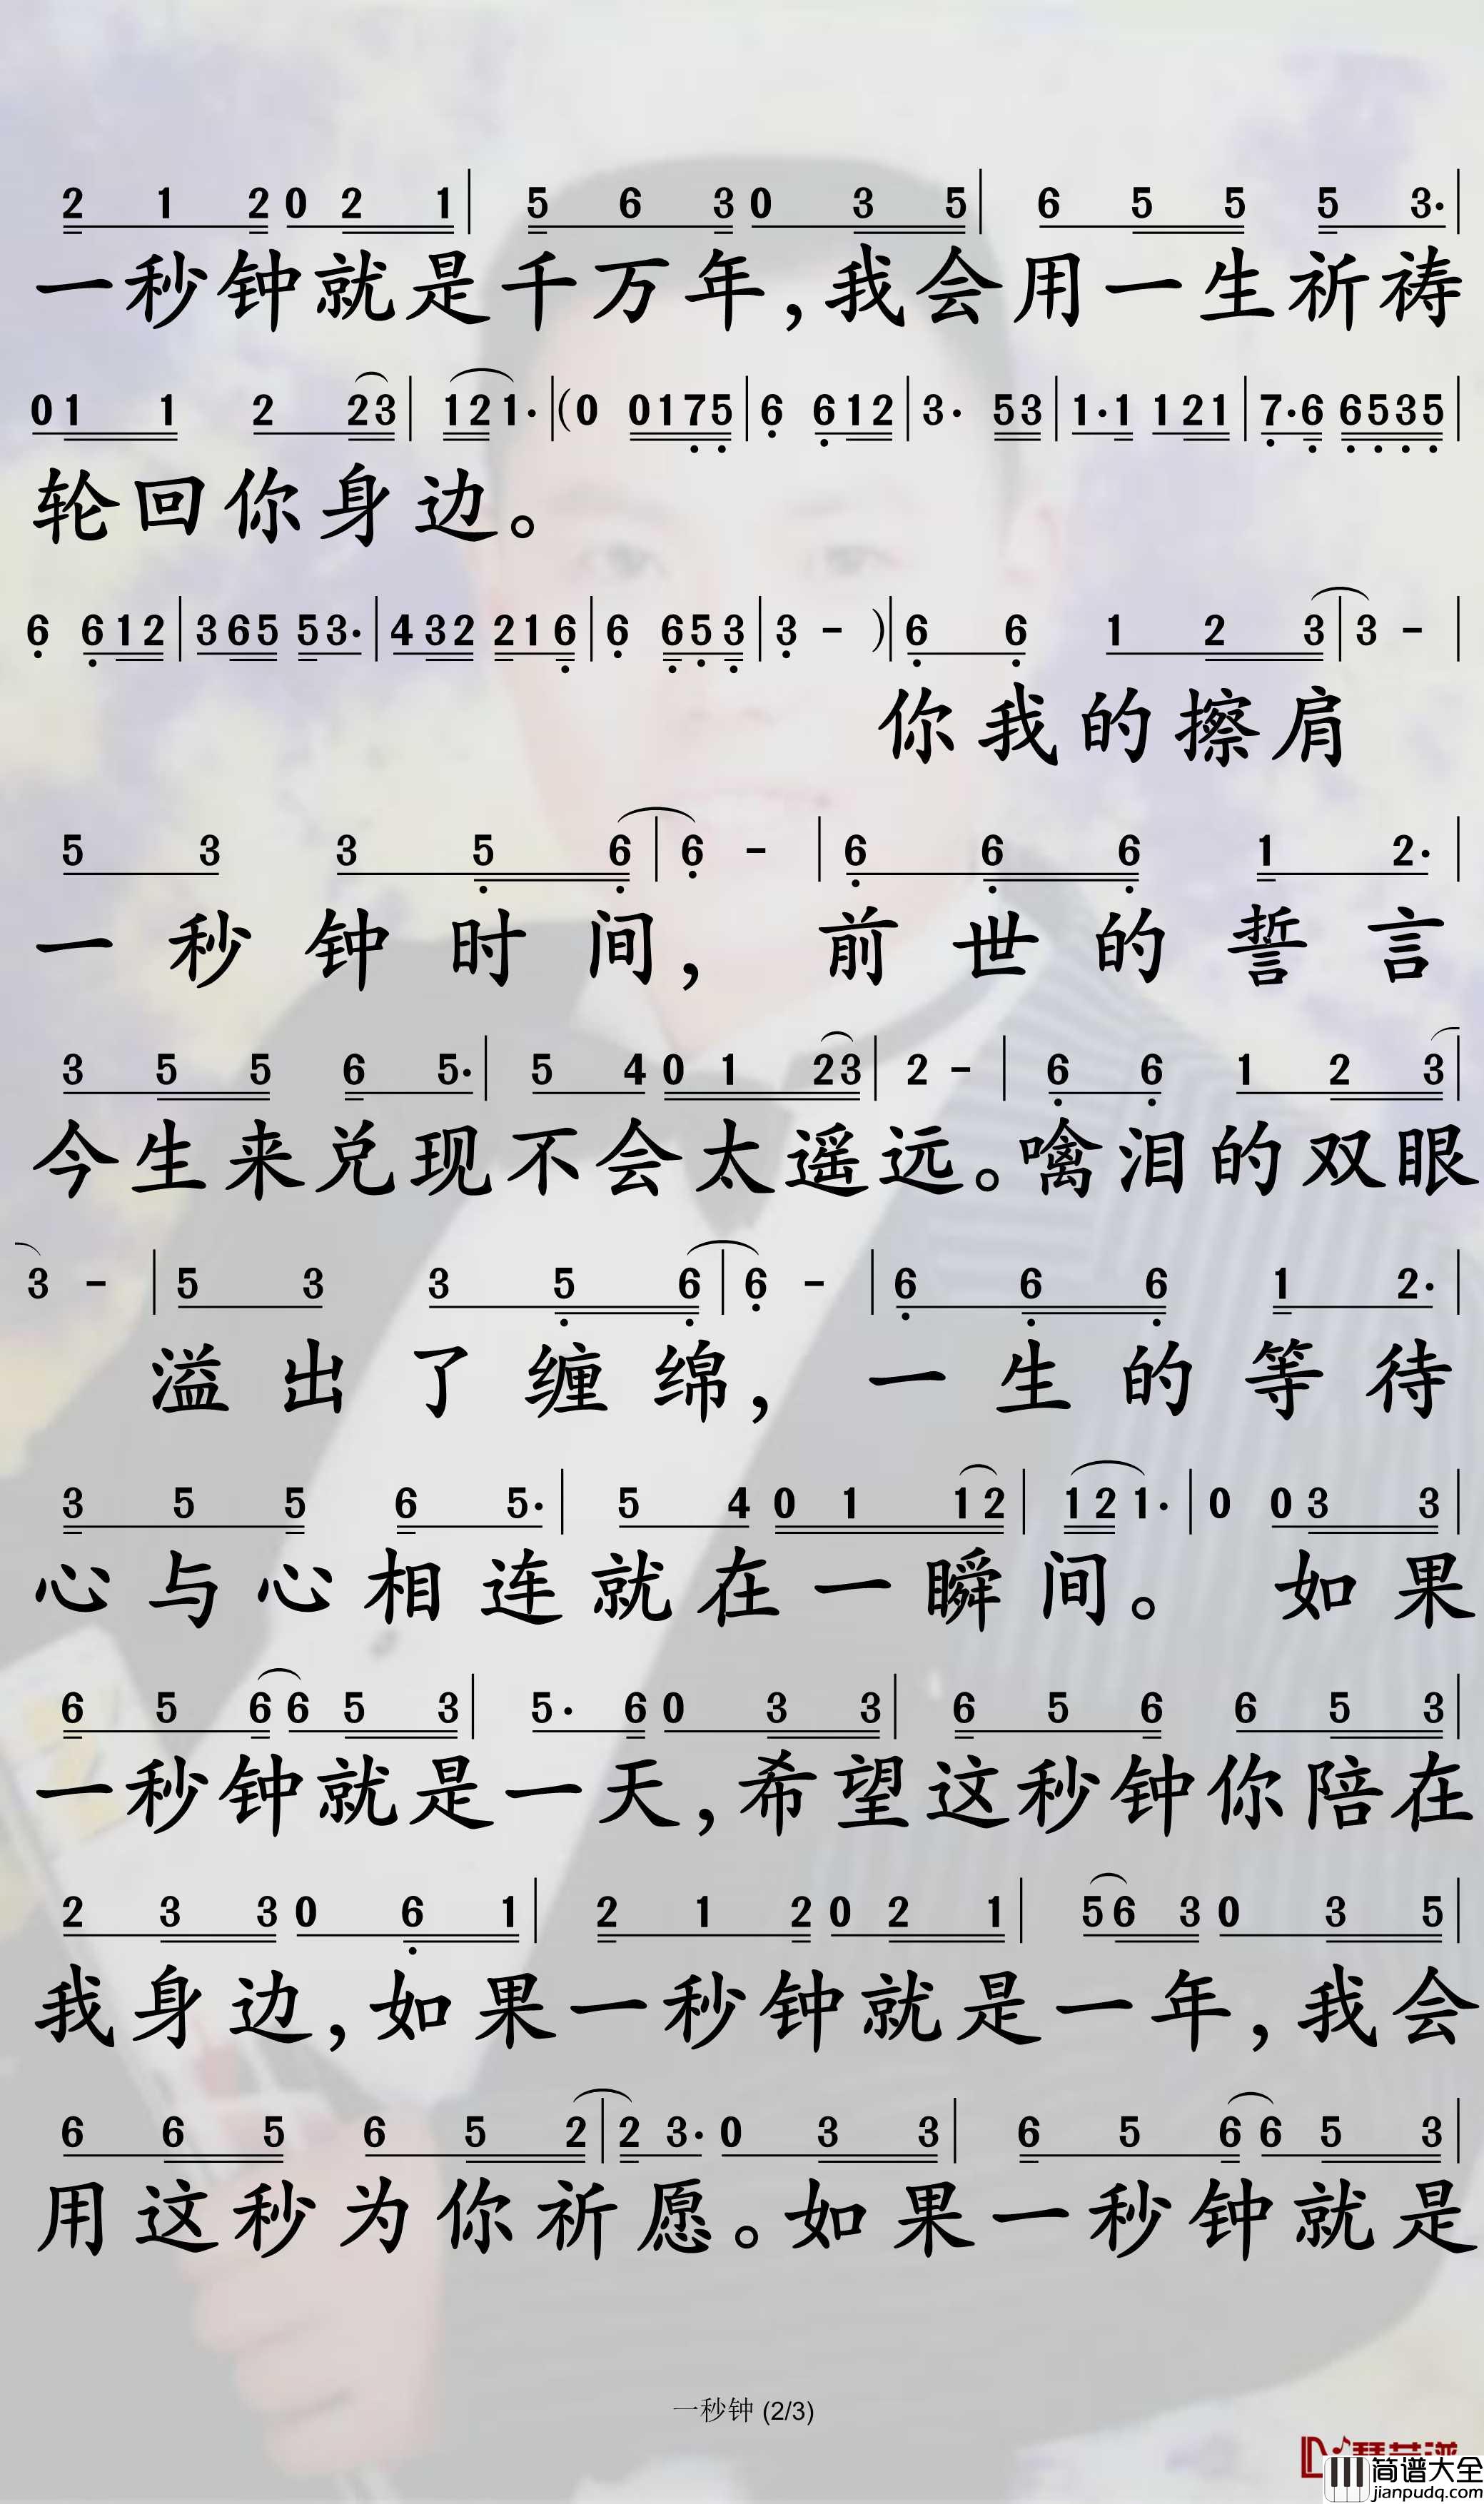 2 1 2 0 2 1 | 5 6 3 0 3 5 | 6 5 5 5 3· |
一秒钟就是千万年，我会用一生祈祷
0 1 1 2 2 3 | 1 2 1· | (0 0 1 7 5 | 6 6 1 2 | 3· 5 3 | 1· 1 1 2 1 | 7· 6 6 5 3 5 |
轮回你身边。
6 6 1 2 | 3 6 5 5 3· | 4 3 2 2 1 6 | 6 6 5 3 | 3 - ) | 6 6 1 2 3 | 3 - |
你我的擦肩
5 3 3 5 6 | 6 - | 6 6 6 1 2· |
一秒钟时间，前世的誓言
3 5 5 6 5· | 5 4 0 1 2 3 | 2 - | 6 6 1 2 3 |
今生来兑现不会太遥远。噙泪的双眼
3 - | 5 3 3 5 6 | 6 - | 6 6 6 1 2· |
溢出了缠绵，一生的等待
3 5 5 6 5· | 5 4 0 1 1 2 | 1 2 1· | 0 0 3 3 |
心与心相连就在一瞬间。如果
6 5 6 6 5 3 | 5· 6 0 3 3 | 6 5 6 6 5 3 |
一秒钟就是一天，希望这秒钟你陪在
2 3 3 0 6 1 | 2 1 2 0 2 1 | 5 6 3 0 3 5 |
我身边，如果一秒钟就是一年，我会
6 6 5 6 5 2 | 2 3· 0 3 3 | 6 5 6 6 5 3 |
用这秒为你祈愿。如果一秒钟就是
一秒钟 (2/3)
简谱大全
jianpudq.com